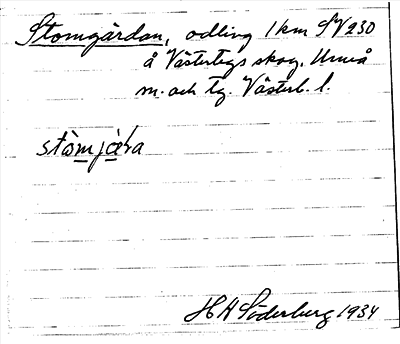 Stomgärdan, odling 1 km SV 230
å Västertegs skog. Umeå
m. och tg. Västerb. l.
stòmjǽra
H A Söderberg 1934